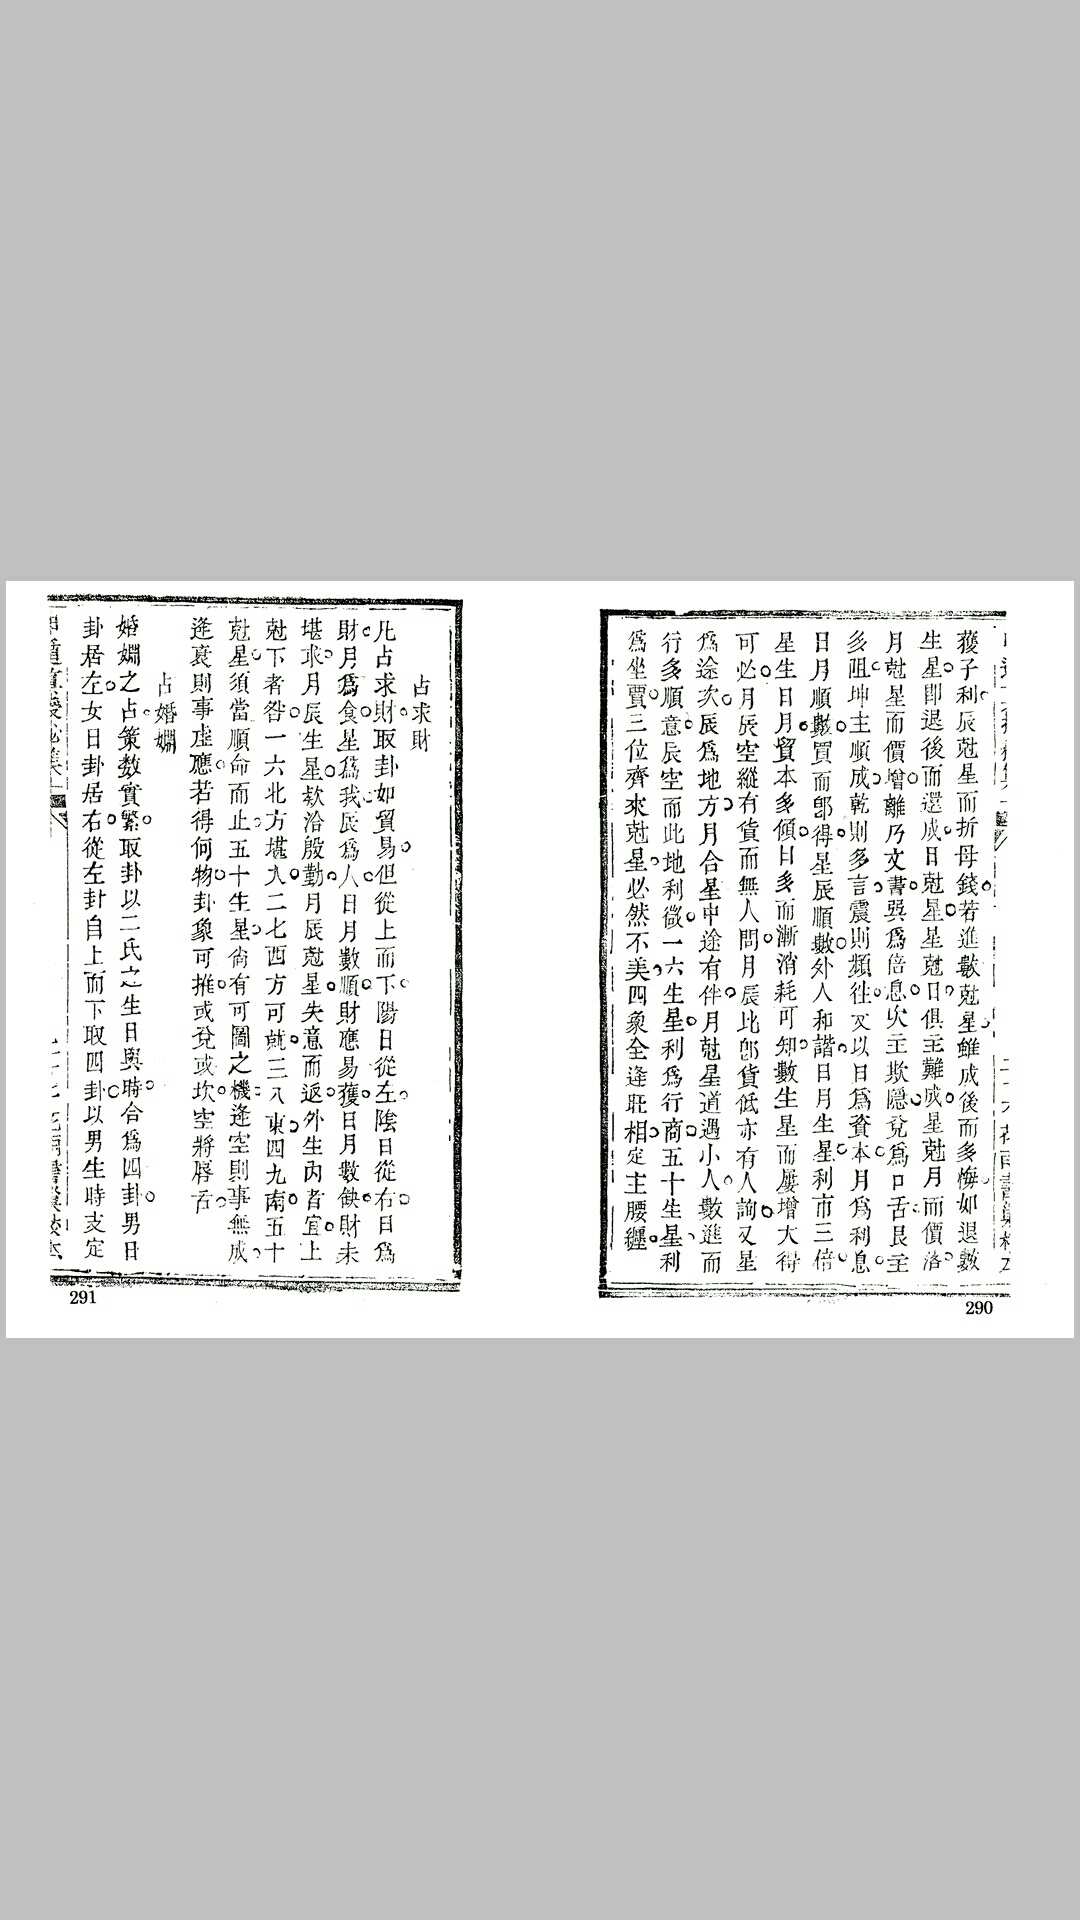 獲子利辰尅星而折母錢若進數尅星雖成後而多悔如退數
生星卽退後而還成日尅星星尅日俱主難成星尅月而價洛
月尅星而價增離乃文書巽爲倍息坎主欺隱兌爲口舌艮主
多阻坤主順成乾則多言震則頻往又以日爲資本月爲利息
日月順數買而卽得星辰順數外人和諧日月生星利市三倍
星生日月貿本多傾日多而漸消耗可知數生星而屢增大得
可必月辰空縱有貨而無人問月辰比卽貨低亦有人詢又星
爲途次辰爲地方月合星中途有伴月尅星道遇小人數進而
行多順意辰空而此地利微一六生星利爲行商五十生星利
爲坐賈三位齊來尅星必然不美四象全逢旺相定主腰纏
290
占求財
凡占求財取卦如貿易但從上而下陽日從左陰日從右日爲
財月爲食星爲我辰爲人日月數順財應易獲日月數缺財未
堪求月辰生星欵洽殷勤月辰尅星失意而返外生內者宜上
尅下者咎一六北方堪久二七西方可就三八東四九南五十
尅星須當順命而止五十生星尙有可圖之機逢空則事無成
逢衰則事虛應若得何物卦象可推或兌或坎空將脣舌
占婚姻
婚姻之占策数實繁取卦以二氏之生日與時合爲四卦男日
卦居左女日卦居右從左卦自上而下取四卦以男生時支定
291